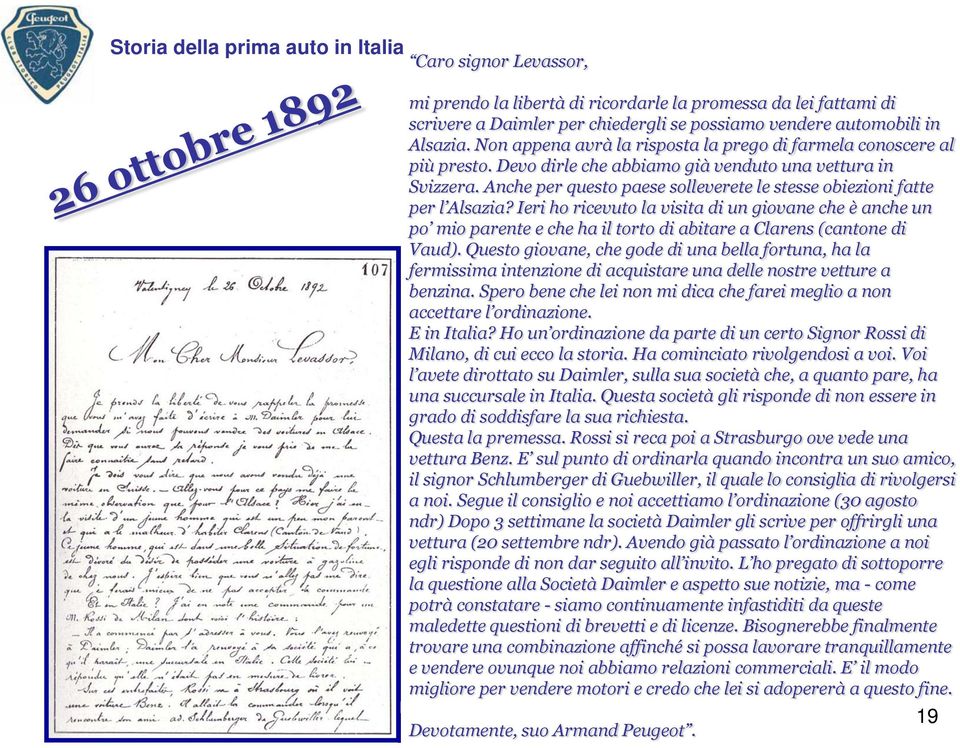 Peugeot
CLUB STORICO ITALIA
Storia della prima auto in Italia
26 ottobre 1892
“Caro signor Levassor,
mi prendo la libertà di ricordarle la promessa da lei fattami di
scrivere a Daimler per chiedergli se possiamo vendere automobili in
Alsazia. Non appena avrà la risposta la prego di farmela conoscere al
più presto. Devo dirle che abbiamo già venduto una vettura in
Svizzera. Anche per questo paese solleverete le stesse obiezioni fatte
per l’Alsazia? Ieri ho ricevuto la visita di un giovane che è anche un
po’ mio parente e che ha il torto di abitare a Clarens (cantone di
Vaud). Questo giovane, che gode di una bella fortuna, ha la
fermissima intenzione di acquistare una delle nostre vetture a
benzina. Spero bene che lei non mi dica che farei meglio a non
accettare l’ordinazione.
E in Italia? Ho un’ordinazione da parte di un certo Signor Rossi di
Milano, di cui ecco la storia. Ha cominciato rivolgendosi a voi. Voi
l’avete dirottato su Daimler, sulla sua società che, a quanto pare, ha
una succursale in Italia. Questa società gli risponde di non essere in
grado di soddisfare la sua richiesta.
Questa la premessa. Rossi si reca poi a Strasburgo ove vede una
vettura Benz. E’ sul punto di ordinarla quando incontra un suo amico,
il signor Schlumberger di Guebwiller, il quale lo consiglia di rivolgersi
a noi. Segue il consiglio e noi accettiamo l’ordinazione (30 agosto
ndr) Dopo 3 settimane la società Daimler gli scrive per offrirgli una
vettura (20 settembre ndr). Avendo già passato l’ordinazione a noi
egli risponde di non dar seguito all’invito. L’ho pregato di sottoporre
la questione alla Società Daimler e aspetto sue notizie, ma - come
potrà constatare - siamo continuamente infastiditi da queste
maledette questioni di brevetti e di licenze. Bisognerebbe finalmente
trovare una combinazione affinché si possa lavorare tranquillamente
e vendere ovunque noi abbiamo relazioni commerciali. E’ il modo
migliore per vendere motori e credo che lei si adopererà a questo fine.
Devotamente, suo Armand Peugeot”.
107
Valentigney le 26 Octobre 1892
Mon Cher Monsieur Levassor,
Je prends la liberté de vous rappeler la promesse
que vous m'avez faite d'écrire à M. Daimler pour lui
demander si nous pouvons vendre des voitures en Alsace.
Dès que vous aurez sa réponse je vous prie de me la
faire connaître sans retard.
Je dois vous dire que nous avons vendu déjà une
voiture en Suisse. – Allez-vous pour ce pays me faire la
même observation que pour l'Alsace? Hier j'ai eu
la visite d'un jeune homme qui est un peu mon parent
et qui a le malheur d'habiter Clarens (Canton de Vaud)
Ce jeune homme, qui est dans une belle situation de fortune,
est dévoré du désir de posséder une voiture à gazoline
de chez nous. J'espère bien que vous n'allez pas me dire
que je ferais mieux de ne pas accepter la commande
Et en Italie? J'ai en note une commande pour un
M. Rossi de Milan dont voici l'histoire:
– Il a commencé par s'adresser à vous. Vous l'avez renvoyé
à Daimler; Daimler l'a renvoyé à sa société qui a, à ce
qu'il paraît, une succursale en Italie. Cette société lui
répondu qu'elle n'était pas en mesure de livrer.
Sur ces entrefaites, Rossi va à Strasbourg où il voit
une voiture Benz. Il allait la commander lorsqu'il
rencontre son ami ad. Schlumberger de Guebwiller lequel
19